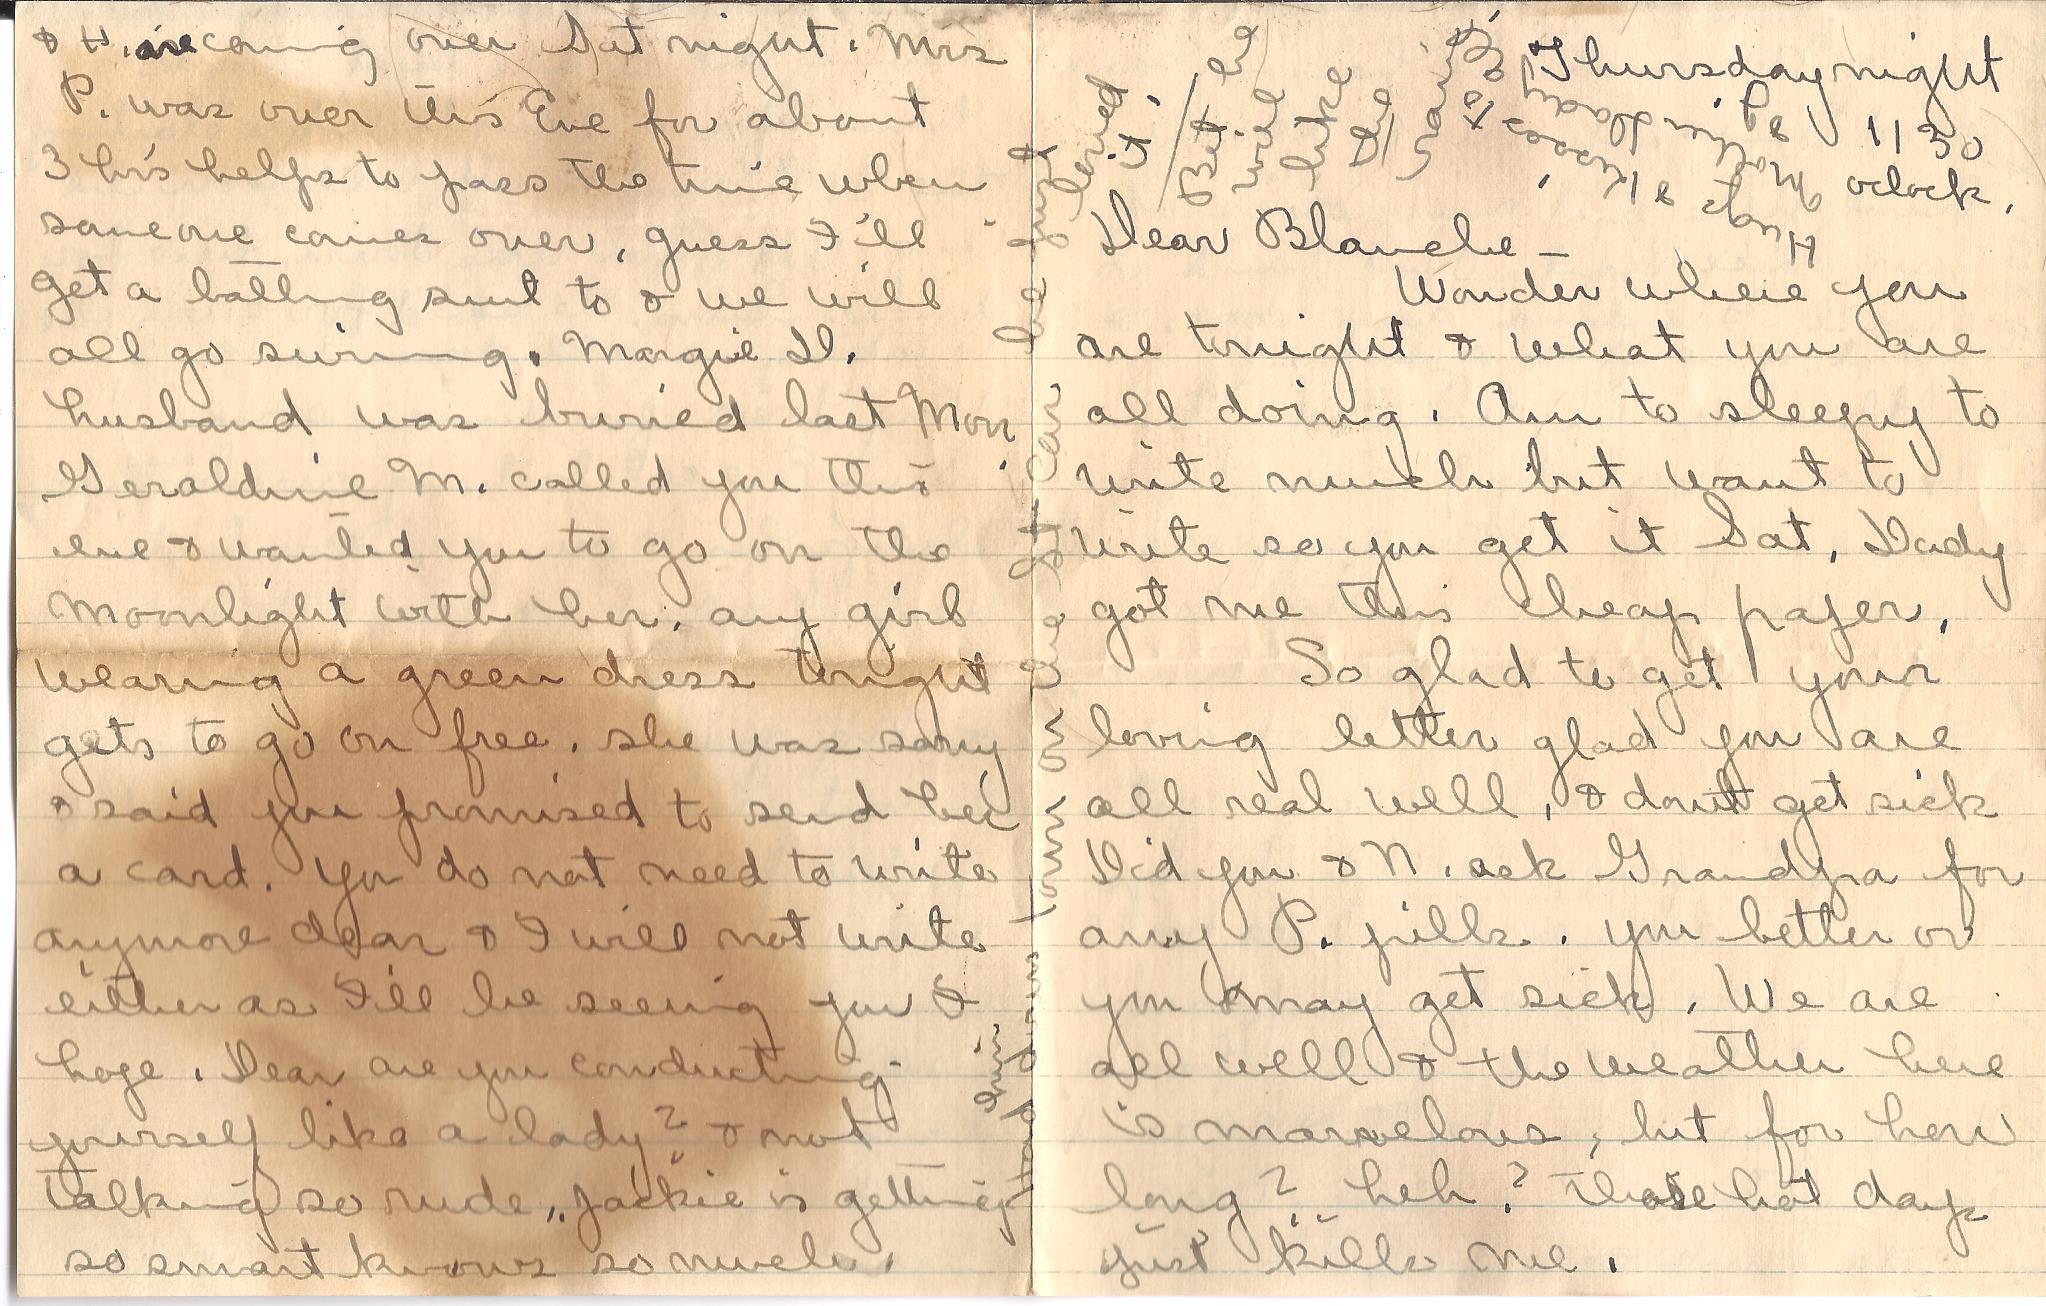 Thursday night
1130
oclock.
Dear Blanche -
Wonder where you
are tonight & what you are
all doing. Am to sleepy to
write much but want to
write so you get it Sat. Dady
got me this cheap paper.
So glad to get your
loving letter glad you are
all real well, & dont get sick
Did you & N. ask Grandpa for
any P. pills. you better or
you may get sick. We are
all well & the weather here
is marvelous, but for how
long? heh? Those hot days
just kills me.
& H. are coming over Sat night. Mrs
P. was over this Eve for about
3 hrs helps to pass the time when
someone comes over, guess I'll
get a bathing suit to & we will
all go swiming. Margie D.
husband was buried last Mon
Geraldine M. called you this
eve & wanted you to go on the
Moonlight with her. any girl
wearing a green dress tonight
gets to go on free. she was sorry
& said you promised to send her
a card. You do not need to write
anymore dear & I will not write
either as I'll be seeing you I
hope. Dear are you conducting
yourself like a lady? & not
talking so rude,, Jackie is getting
so smart knows so much.
town on the st car. he just
loved
it.
/ But he
will
like
the
Sand
Hugs & kisses
Mother & Dady